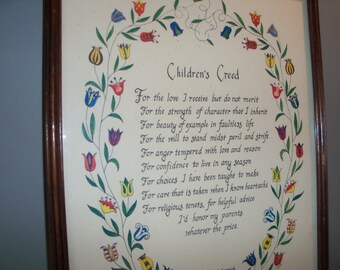 Children's Creed
For the love I receive but do not merit
For the strength of character that I inherit
For beauty of example in faultless life
For the will to stand midst peril and strife
For anger tempered with love and reason
For confidence to live in any season
For choices I have been taught to make
For care that is taken when I know heartache
For religious tenets, for helpful advice
I'd honor my parents
whatever the price.